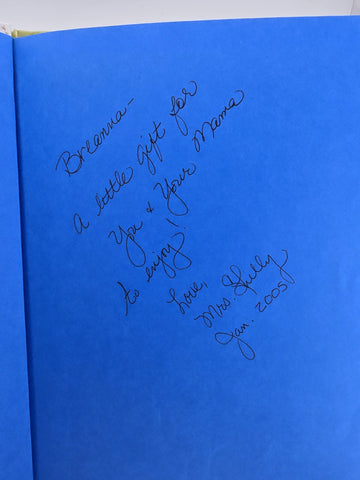 Breanna -
a little gift for
You & Your Mama
to enjoy!
Love,
Mrs. Skelly
Jan. 2005